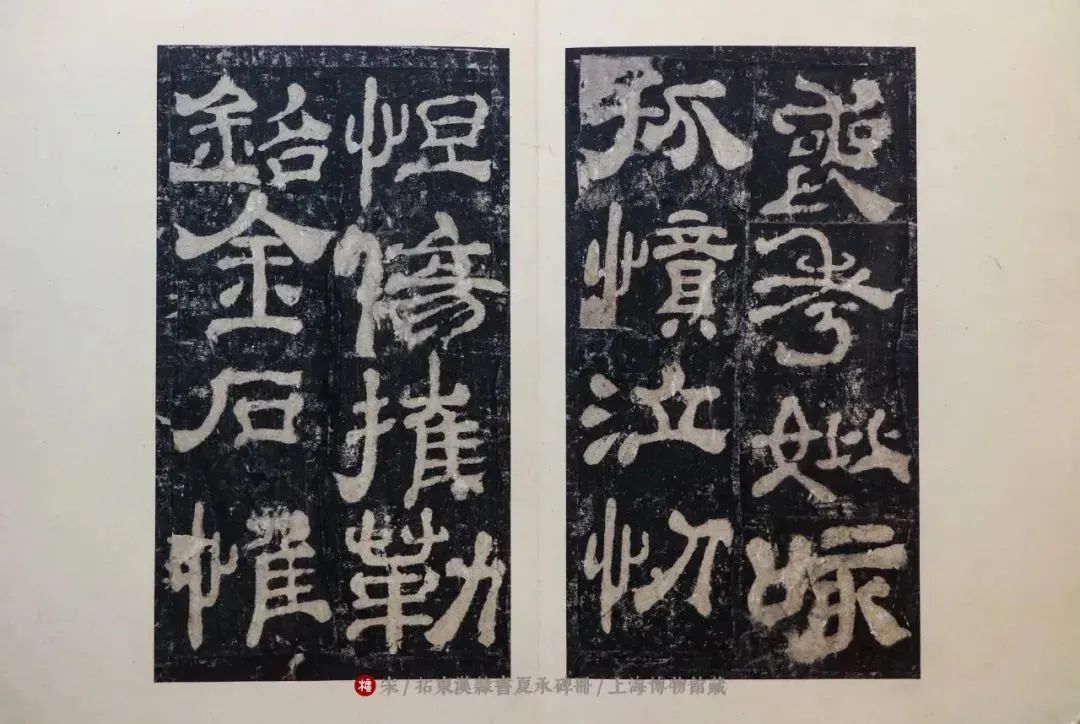 喪考妣咳
孤憤泣忉
怛傷摧勒
銘金石惟
宋/拓東漢隸書夏承碑冊/上海博物館藏